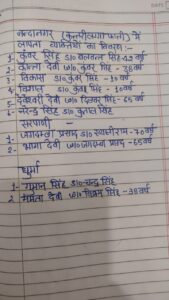 नन्दानगर (कुन्तरीलगाफाली) में
लापता व्यक्तियों का विवरण:-
1- कुंवर सिंह S/O बलवन्त सिंह-42 वर्ष
2- कान्ता देवी W/O कुंवर सिंह - 38 वर्ष
3- विकास S/O कुंवर सिंह - 10 वर्ष
4- विशाल S/O कुंवर सिंह - 10 वर्ष
5- देवेश्वरी देवी W/O दिलबर सिंह - 65 वर्ष
6- नरेन्द्र सिंह S/O कुताल सिंह
सरपाणी -
1- जगदम्बा प्रसाद S/O ख्याली राम - 70 वर्ष
2- भागा देवी W/O जगदम्बा प्रसाद - 65 वर्ष
धुर्मा
1- गुमान सिंह S/O चन्द्र सिंह
2- ममता देवी W/O विक्रम सिंह - 38 वर्ष